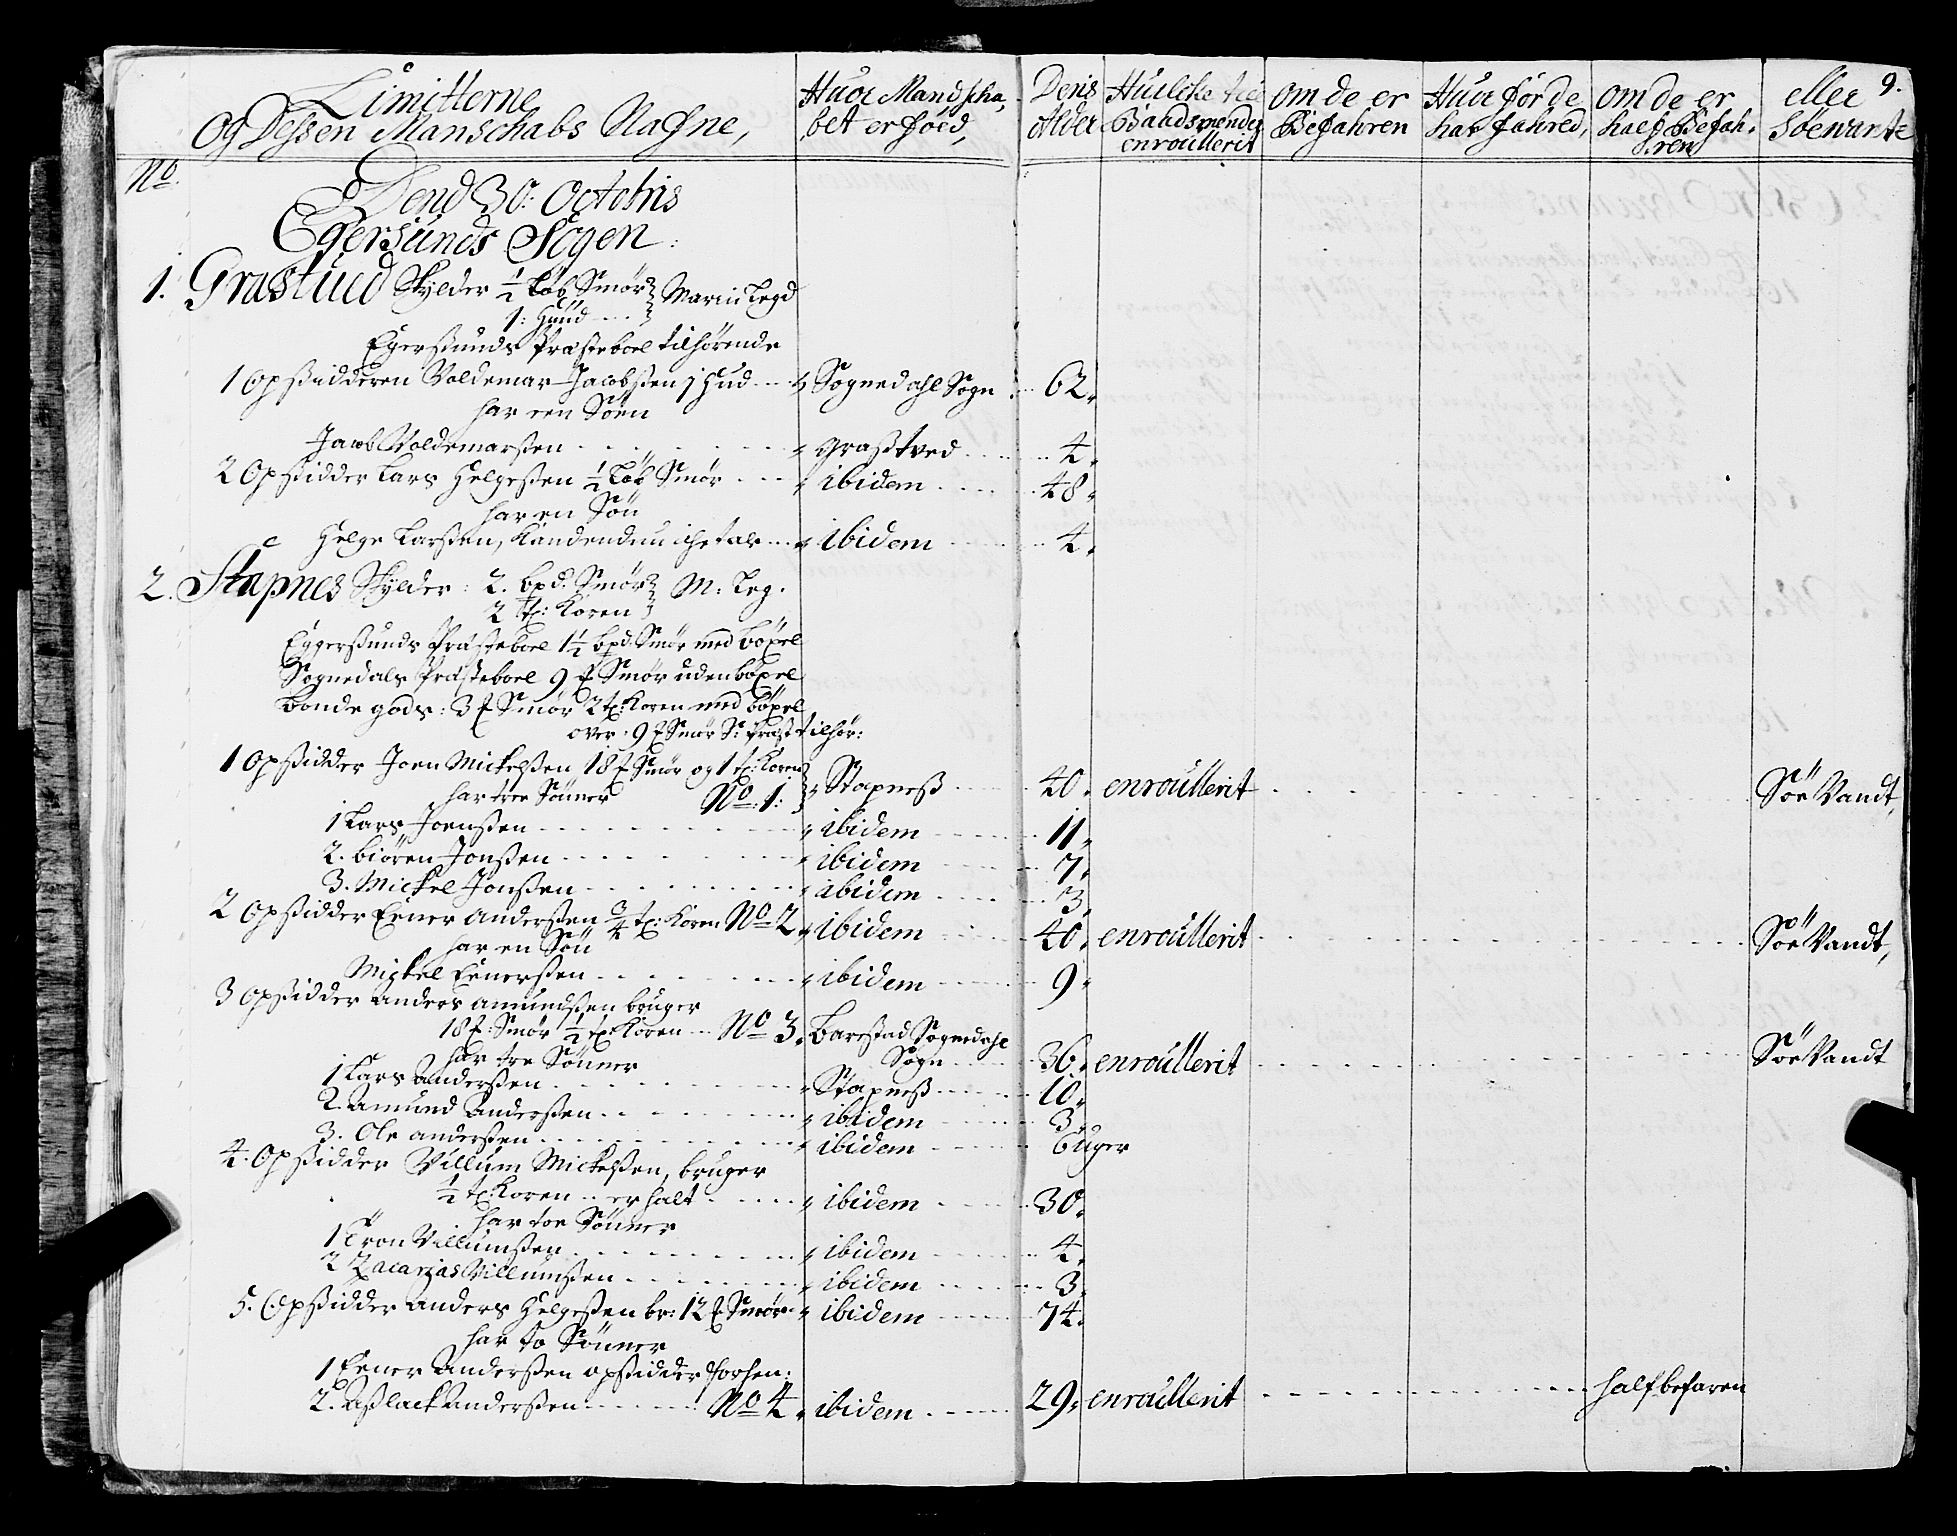 Limitterne
Og Dessen Manschabs Nafne,
Huor Mandscha,
bet er föed,
Deris
Alder
Huilcke til
Baadsmender
enroullerit
om de er
Befahren
Huor för de
har fahred,
om de er
half Befah,
ren
eller
Söevante
9.
No.
Dend 30: Octobris
Egersunds Sogen.
1. Grastued Skylder ½ Løb Smør Marin Legd
1: Huud
Egersunds Præsteboel tilhørende
1 Opsidderen Voldemar Jacobsen 1 Hud Sognedahl Sogn 62.
har een Søen
Jacob Voldemarsen Grasstved 4.
2 Opsidder Lars Helgesen ½ Løb Smør ibidem 48.
har en Søn
Helge Larsen, ibidem 4.
2. Stapnes Skylder: 2. bpd: Smør M: Leg.
2 tn: Koren
Eggersunds Præsteboel 1½ bpd. Smør med böxel
Sognedals Præsteboel 9 ℔ Smør uden böxel
Bonde gods: 3 ℔ Smør 2 tn: Koren med böxel
over 9 ℔ Smør S: Præst tilhør:
1 Opsidder Joen Mickelsen 18 ℔ Smør og 1 tn: Koren
har tre Sønner No. 1: Stapness 40. enroullerit Söe Vandt
1 Lars Joensen ibidem 11.
2. Biören Jonsen ibidem 7.
3. Mickel Jonsen ibidem 3.
2 Opsidder Eener Andersen ¾ tn: Koren No 2. ibidem 40. enroullerit Söe Vandt,
har en Søn
Mickel Eenersen ibidem 9.
3 Opsidder Anders Amundsen bruger
18 ℔: Smør ½ tn: Koren No 3. Barstad Sognedahl
har tre Sønner Sogn 36. enroullerit Söe Vandt
1 Lars Andersen Stapness 10.
2. Amund Andersen ibidem 3.
3. Ole Andersen ibidem 6 uger
4. Opsidder Villum Mickelsen, bruger
½ tn: Koren er halt ibidem 30.
har toe Sønner
1 Tron Villumsen ibidem 4.
2 Zacarias Villumsen ibidem 3.
5. Opsidder Anders Helgesen br: 12 ℔ Smør ibidem 74.
har to Sønner
1 Eener Andersen opsidder forhen:
2. Asslack Andersen No 4. ibidem 29. enroullerit half befaren